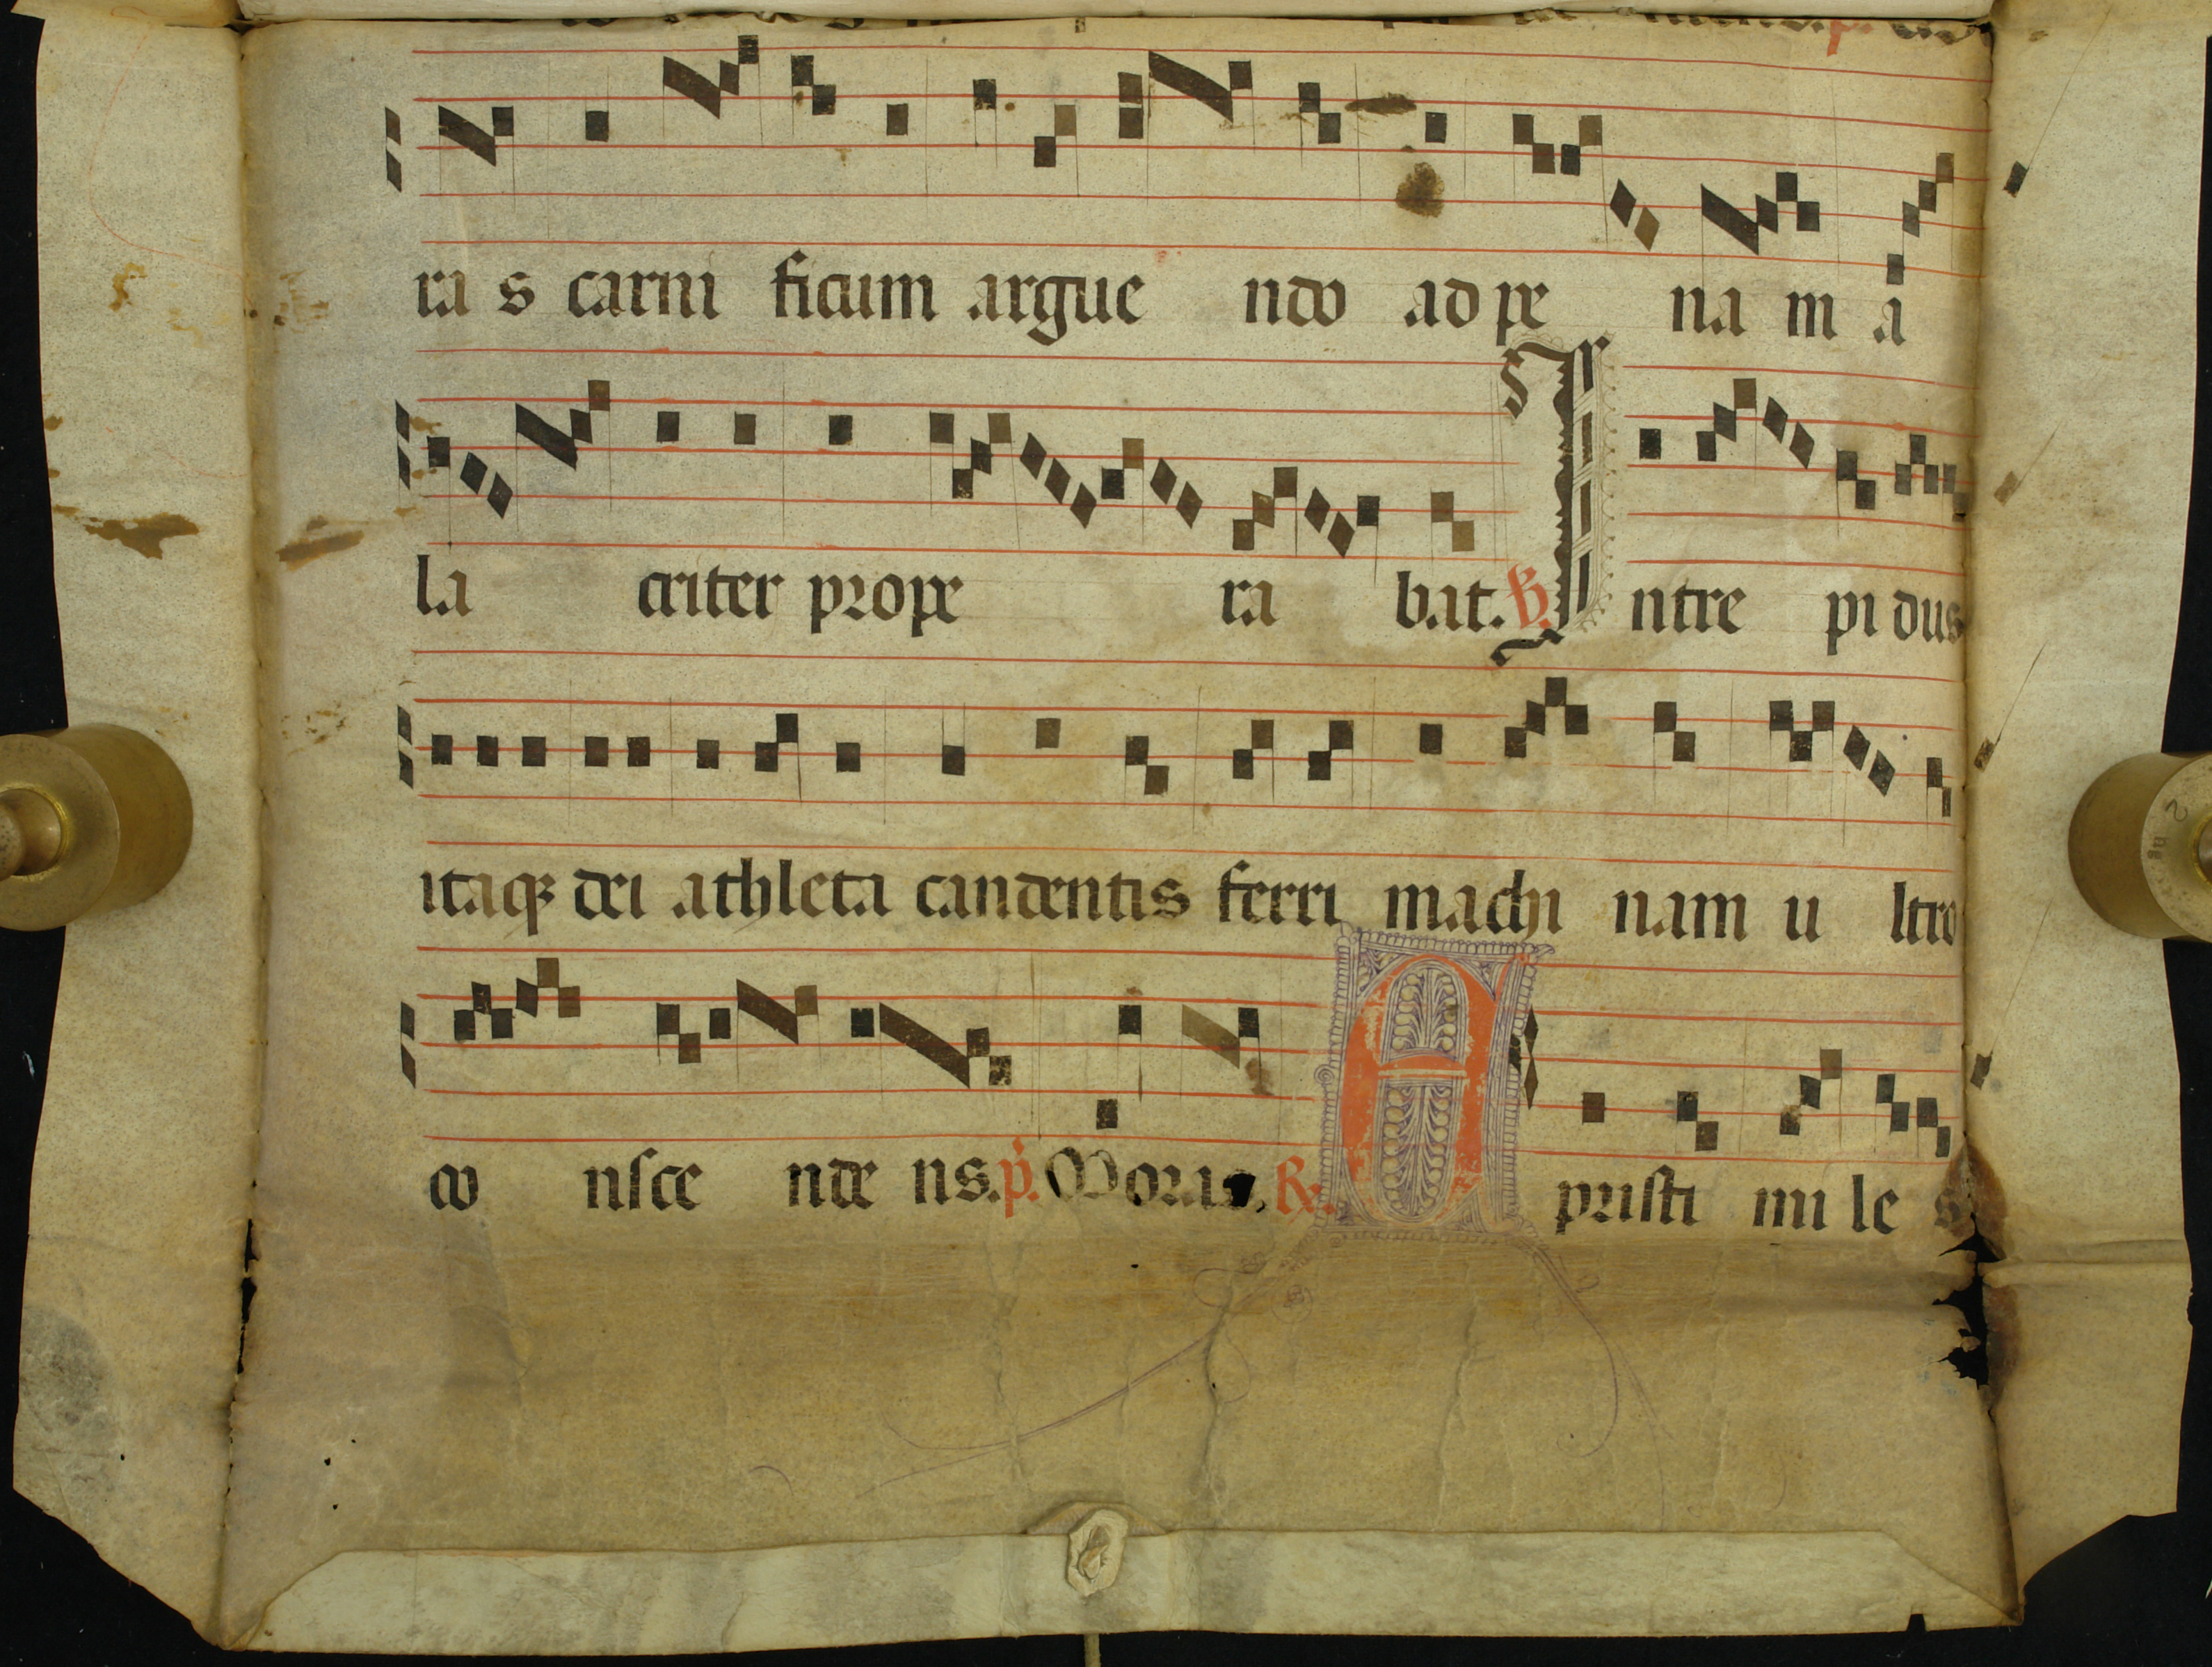 ra s carni ficum argue ndo ad pe na m a
la criter prope ra bat. ℣. Intre pi dus
itaqꝫ dei athleta candentis ferri machi nam u ltro
co nsce nde ns. p̃. Moris. ℟. A pristi mi le s